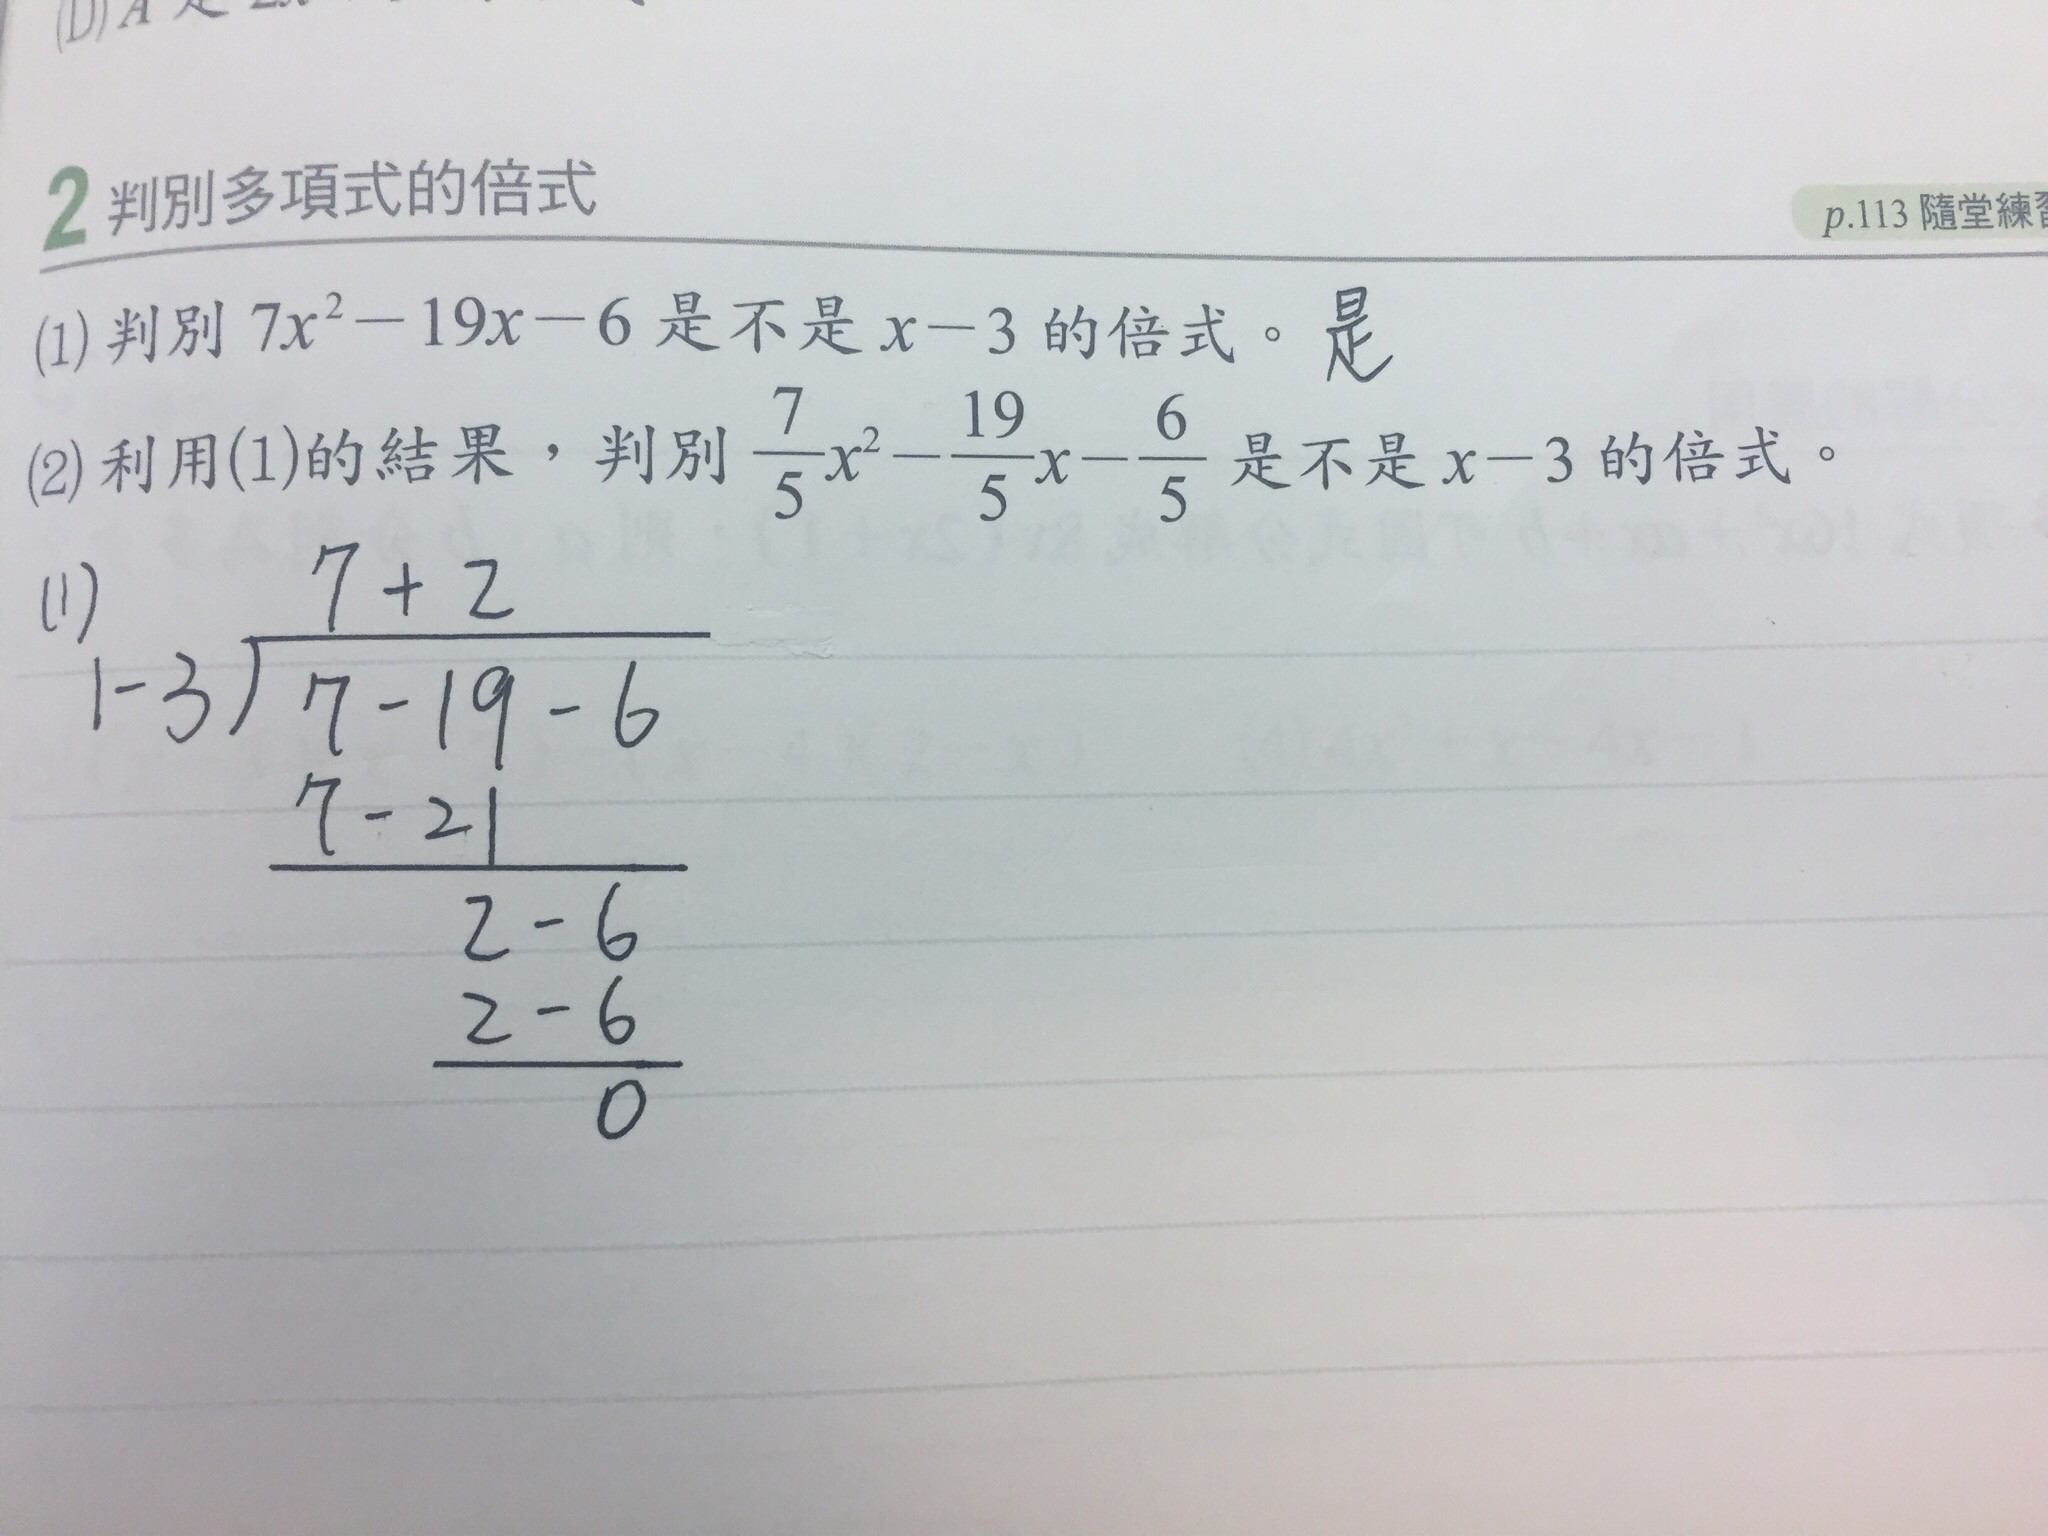 (D) A 是 2x
2 判別多項式的倍式
p.113 隨堂練習
(1) 判別 7x²－19x－6 是不是 x－3 的倍式。是
(2) 利用(1)的結果，判別 7/5 x²－19/5 x－6/5 是不是 x－3 的倍式。
(1)
7 + 2
1 - 3 ) 7 - 19 - 6
7 - 21
2 - 6
2 - 6
0